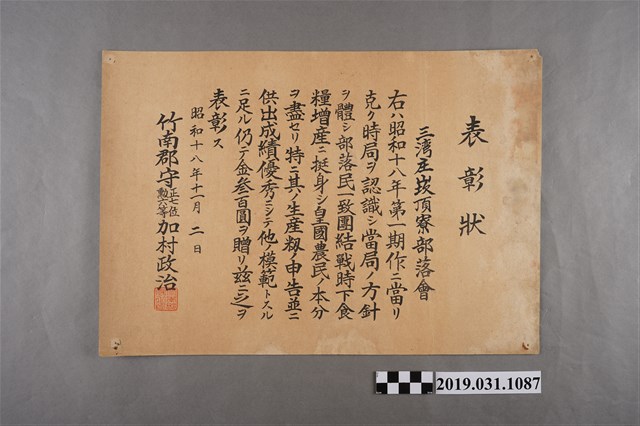 表彰狀
三灣庄崁頂寮部落會
右ハ昭和十八年第一期作ニ當リ
克ク時局ヲ認識シ當局ノ方針
ヲ體シ部落民一致團結戰時下食
糧增產ニ挺身シ皇國農民ノ本分
ヲ盡セリ特ニ其ノ生產籾ノ申告並ニ
供出成績優秀ニシテ他ノ模範トスル
ニ足ル仍テ金叁百圓ヲ贈リ茲ニ之ヲ
表彰ス
昭和十八年十一月二日
竹南郡守正七位勳六等加村政治
2019.031.1087